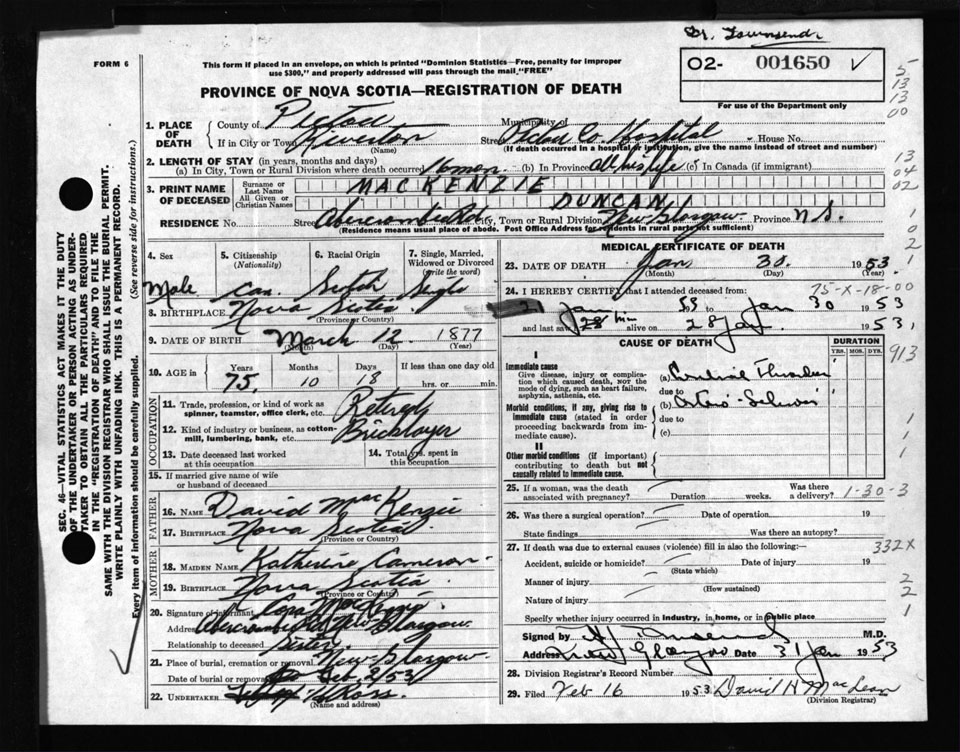 Dr. Townsend.
FORM 6
This form if placed in an envelope, on which is printed "Dominion Statistics—Free, penalty for improper
use $300," and properly addressed will pass through the mail, "FREE"
02- 001650 ✓
For use of the Department only
PROVINCE OF NOVA SCOTIA—REGISTRATION OF DEATH
5
13
13
00
1. PLACE OF DEATH
County of Pictou
Municipality of
If in City or Town Riverton
(Name)
Street Pictou Co. Hospital House No.
(If death occurred in a hospital or institution, give the name instead of street and number)
2. LENGTH OF STAY (in years, months and days)
(a) In City, Town or Rural Division where death occurred (b) In Province All his life (c) In Canada (if immigrant)
13
04
02
3. PRINT NAME OF DECEASED
Surname or Last Name MACKENZIE
All Given or Christian Names DUNCAN
RESIDENCE No. Street Abercrombie Rd. City, Town or Rural Division New Glasgow Province N.S.
(Residence means usual place of abode. Post Office Address for residents in rural parts not sufficient)
1
0
2
1
4. Sex
5. Citizenship (Nationality)
6. Racial Origin
7. Single, Married, Widowed or Divorced (write the word)
Male Can. Scotch Single
8. BIRTHPLACE Nova Scotia
(Province or Country)
9. DATE OF BIRTH March 12 1877
(Month) (Day) (Year)
10. AGE in Years Months Days If less than one day old
75 10 18 hrs. or min.
OCCUPATION
11. Trade, profession, or kind of work as spinner, teamster, office clerk, etc. Retired
12. Kind of industry or business, as cotton-mill, lumbering, bank, etc. Bricklayer
13. Date deceased last worked at this occupation
14. Total yrs. spent in this occupation
15. If married give name of wife or husband of deceased
FATHER
16. NAME David MacKenzie
17. BIRTHPLACE Nova Scotia
(Province or Country)
MOTHER
18. MAIDEN NAME Katherine Cameron
19. BIRTHPLACE Nova Scotia
(Province or Country)
20. Signature of informant Cora MacKenzie
Address Abercrombie Rd New Glasgow
Relationship to deceased Sister
21. Place of burial, cremation or removal New Glasgow
Date of burial or removal Feb. 2/53
22. UNDERTAKER Ross.
(Name and address)
MEDICAL CERTIFICATE OF DEATH
23. DATE OF DEATH Jan 30. 1953
(Month) (Day) (Year)
24. I HEREBY CERTIFY that I attended deceased from:
75-X-18-00
Jan 53 to Jan 30 1953
and last saw him alive on 28 Jan. 1953
CAUSE OF DEATH
DURATION
YRS. MOS. DYS.
913
I
Immediate cause
Give disease, injury or complication which caused death, not the mode of dying, such as heart failure, asphyxia, asthenia, etc.
(a)
due to
Morbid conditions, if any, giving rise to immediate cause (stated in order proceeding backwards from immediate cause).
(b)
due to
(c)
1
1
1
II
Other morbid conditions (if important) contributing to death but not causally related to immediate cause.
25. If a woman, was the death associated with pregnancy? Duration weeks. Was there a delivery?
1-30-3
26. Was there a surgical operation? Date of operation 19
State findings Was there an autopsy?
27. If death was due to external causes (violence) fill in also the following:—
332X
Accident, suicide or homicide? Date of injury 19
(State which)
Manner of injury
(How sustained)
Nature of injury
2
2
1
Specify whether injury occurred in industry, in home, or in public place
Signed by Townsend M.D.
Address New Glasgow Date 31 Jan 1953
28. Division Registrar's Record Number
29. Filed Feb 16 1953 David H MacLean
(Division Registrar)
SEC. 46—VITAL STATISTICS ACT MAKES IT THE DUTY
OF THE UNDERTAKER OR PERSON ACTING AS UNDER-
TAKER TO OBTAIN ALL THE PARTICULARS REQUIRED
IN THE "REGISTRATION OF DEATH" AND TO FILE THE
SAME WITH THE DIVISION REGISTRAR WHO SHALL ISSUE THE BURIAL PERMIT.
WRITE PLAINLY WITH UNFADING INK. THIS IS A PERMANENT RECORD.
Every item of information should be carefully supplied. (See reverse side for instructions.)